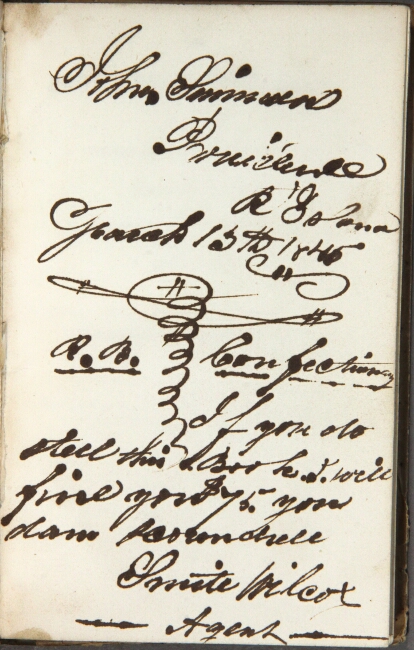 John
Providence
R Island
March 13th 1846
R. B. Confectionary
If you do
stell this Book I will
fine you $75 you
dam scoundrell
Wilcox
Agent